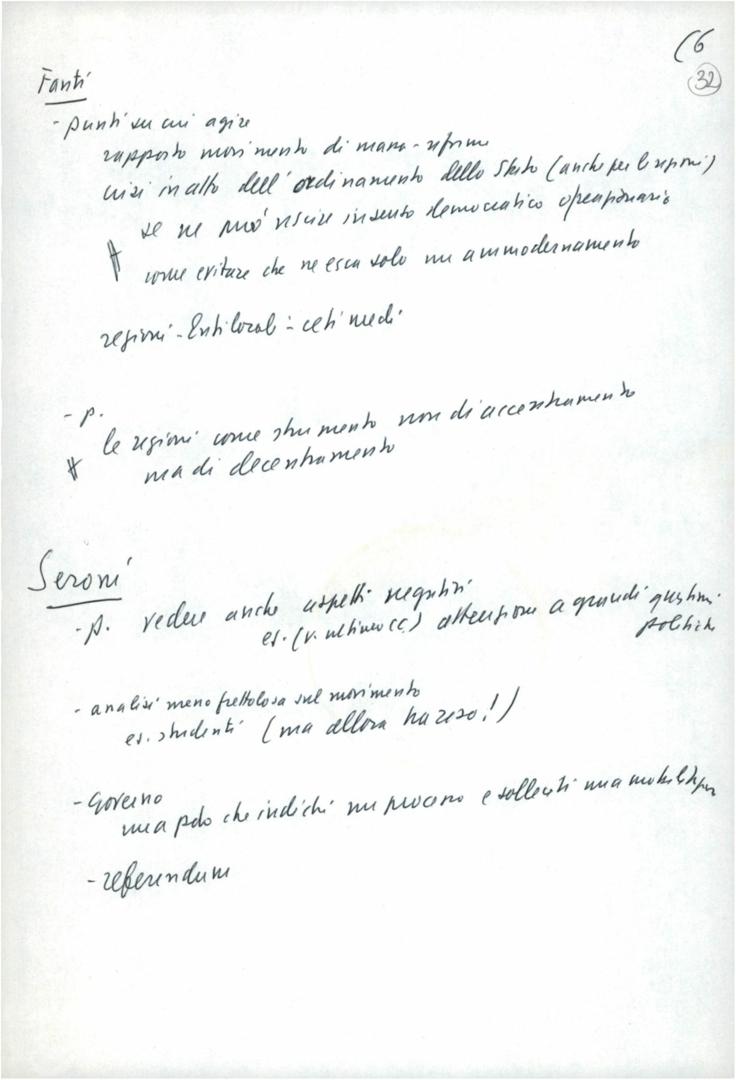 (6
32
Fanti
- punti su cui agire
rapporto movimento di massa - riforme
crisi in atto dell'ordinamento dello Stato (anche per le regioni)
se ne può uscire in senso democratico o reazionario
# come evitare che ne esca solo un ammodernamento
regioni - Enti locali - ceti medi
- p.
le regioni come strumento non di accentramento
# ma di decentramento
Seroni
- p. vedere anche aspetti negativi
es. (v. ultimo CC) attenzione a grandi questioni
politiche
- analisi meno frettolosa sul movimento
es. studenti (ma allora ha reso!)
- Governo
una pdo che indichi un processo e solleciti una
- referendum